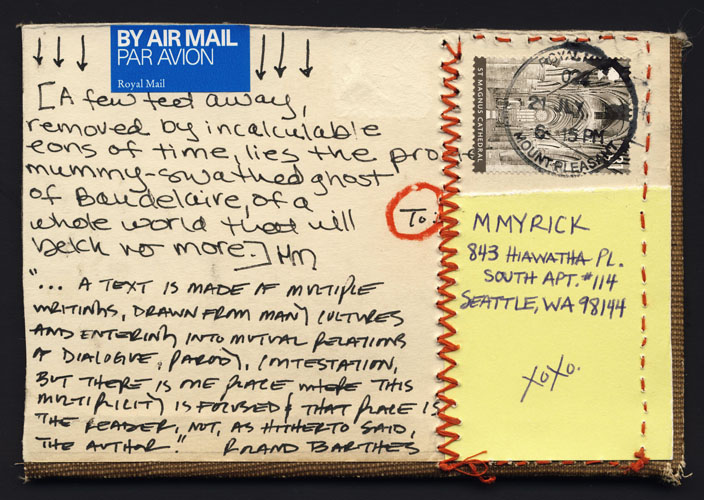 BY AIR MAIL
PAR AVION
Royal Mail
[A few feet away,
removed by incalculable
eons of time, lies the
mummy-swathed ghost
of Baudelaire, of a
whole world that will
belch no more.] HM
"... A TEXT IS MADE OF MULTIPLE
WRITINGS, DRAWN FROM MANY CULTURES
AND ENTERING INTO MUTUAL RELATIONS
OF DIALOGUE, PARODY, CONTESTATION,
BUT THERE IS ONE PLACE WHERE THIS
MULTIPLICITY IS FOCUSED & THAT PLACE IS
THE READER, NOT, AS HITHERTO SAID,
THE AUTHOR." ROLAND BARTHES
To:
ST MAGNUS CATHEDRAL
ROYAL
21 JLY
15 PM
MOUNT PLEASANT
M MYRICK
843 HIAWATHA PL.
SOUTH APT. #114
SEATTLE, WA 98144
XOXO.